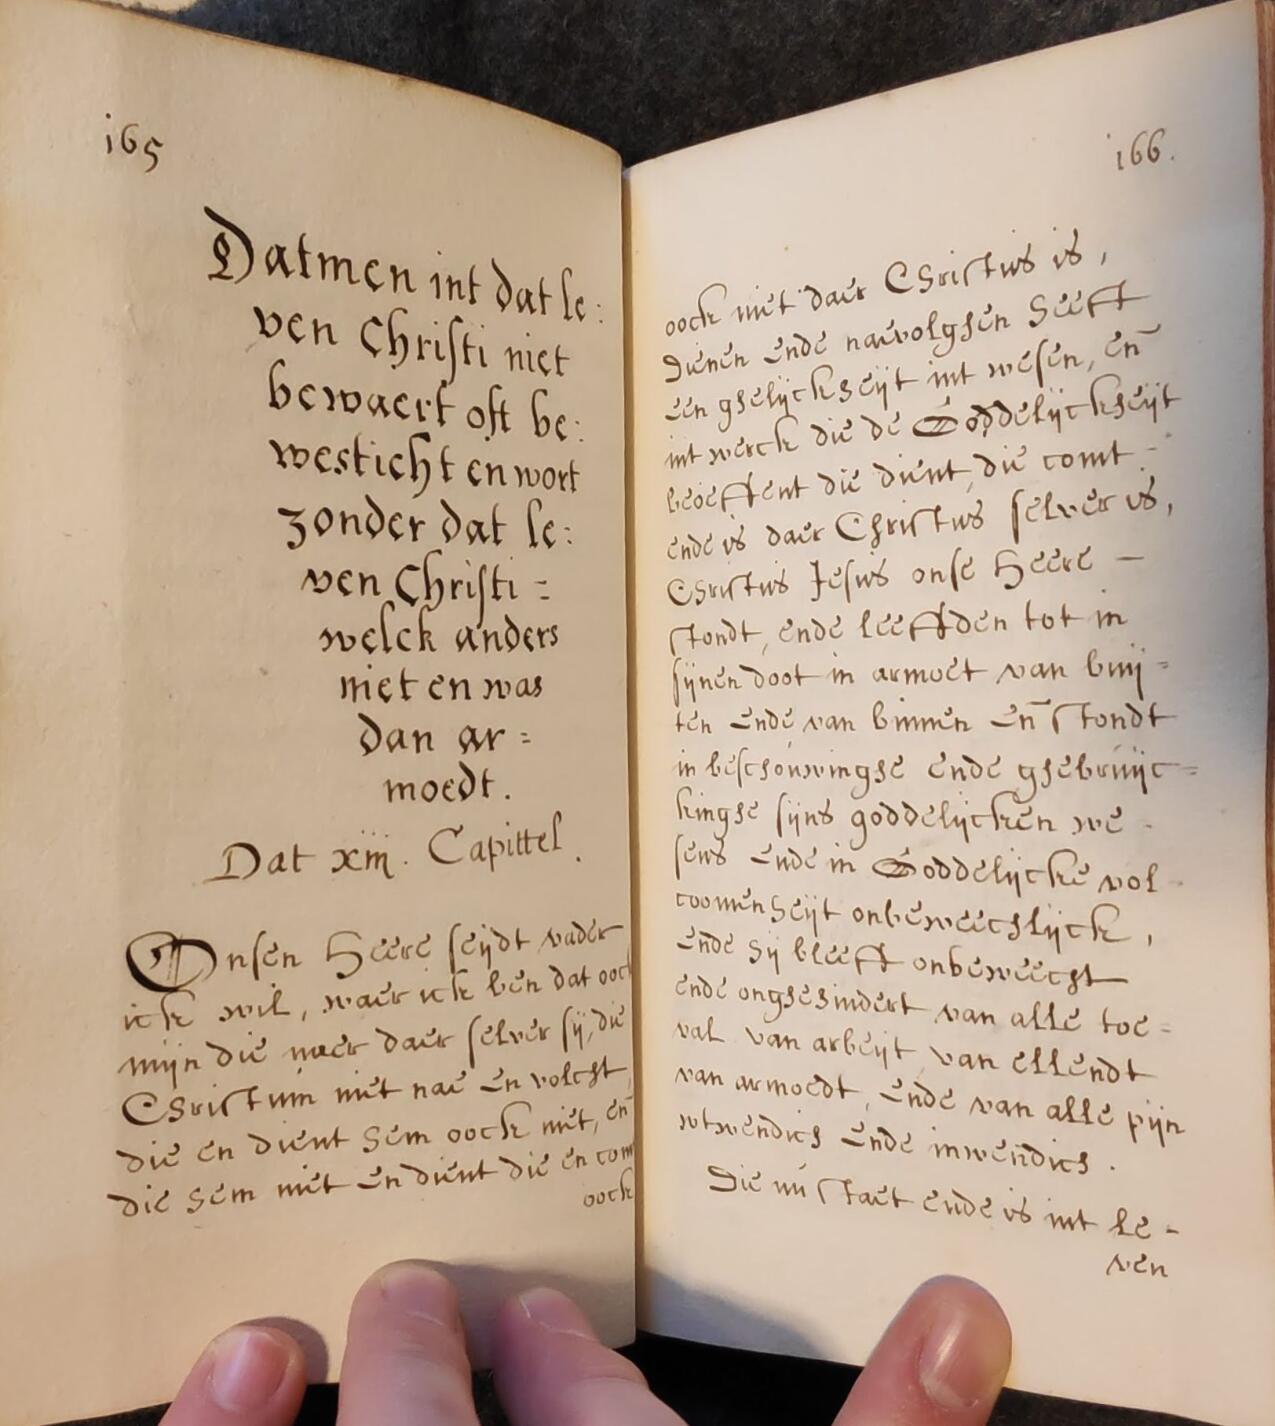 165
Datmen int dat le:
ven Christi niet
bewaert oft be:
vesticht en wort
zonder dat le:
ven Christi =
welck anders
niet en was
dan ar =
moedt.
Dat xiij. Capittel.
Onsen Heere seijdt vader
ick wil, waer ick ben dat oock
mijn die naer daer selver sij, die
Christum niet nae en volcht,
die en dient hem oock niet, en̄
die hem niet en dient die en com
oock
166.
oock niet daer Christus is,
dienen ende naevolghen heeft
een ghelijckheijt int wesen, en̄
int werck die de Goddelijckheijt
beoeffent die dient, die comt -
ende is daer Christus selver is,
Christus Jesus onse Heere —
stondt, ende leeffden tot in
sijnen doot in armoet van buij =
ten ende van binnen en̄ stondt
in beschouwinghe ende ghebruijc =
kinghe sijns goddelijcken we -
sens ende in Goddelijcke vol -
coomenheijt onbeweechlijck,
ende hij bleeff onbeweecht
ende onghehindert van alle toe =
val van arbeijt, van ellendt
van armoedt, ende van alle pijn
wtwendich ende inwendich.
Die nu staet ende is int le -
ven